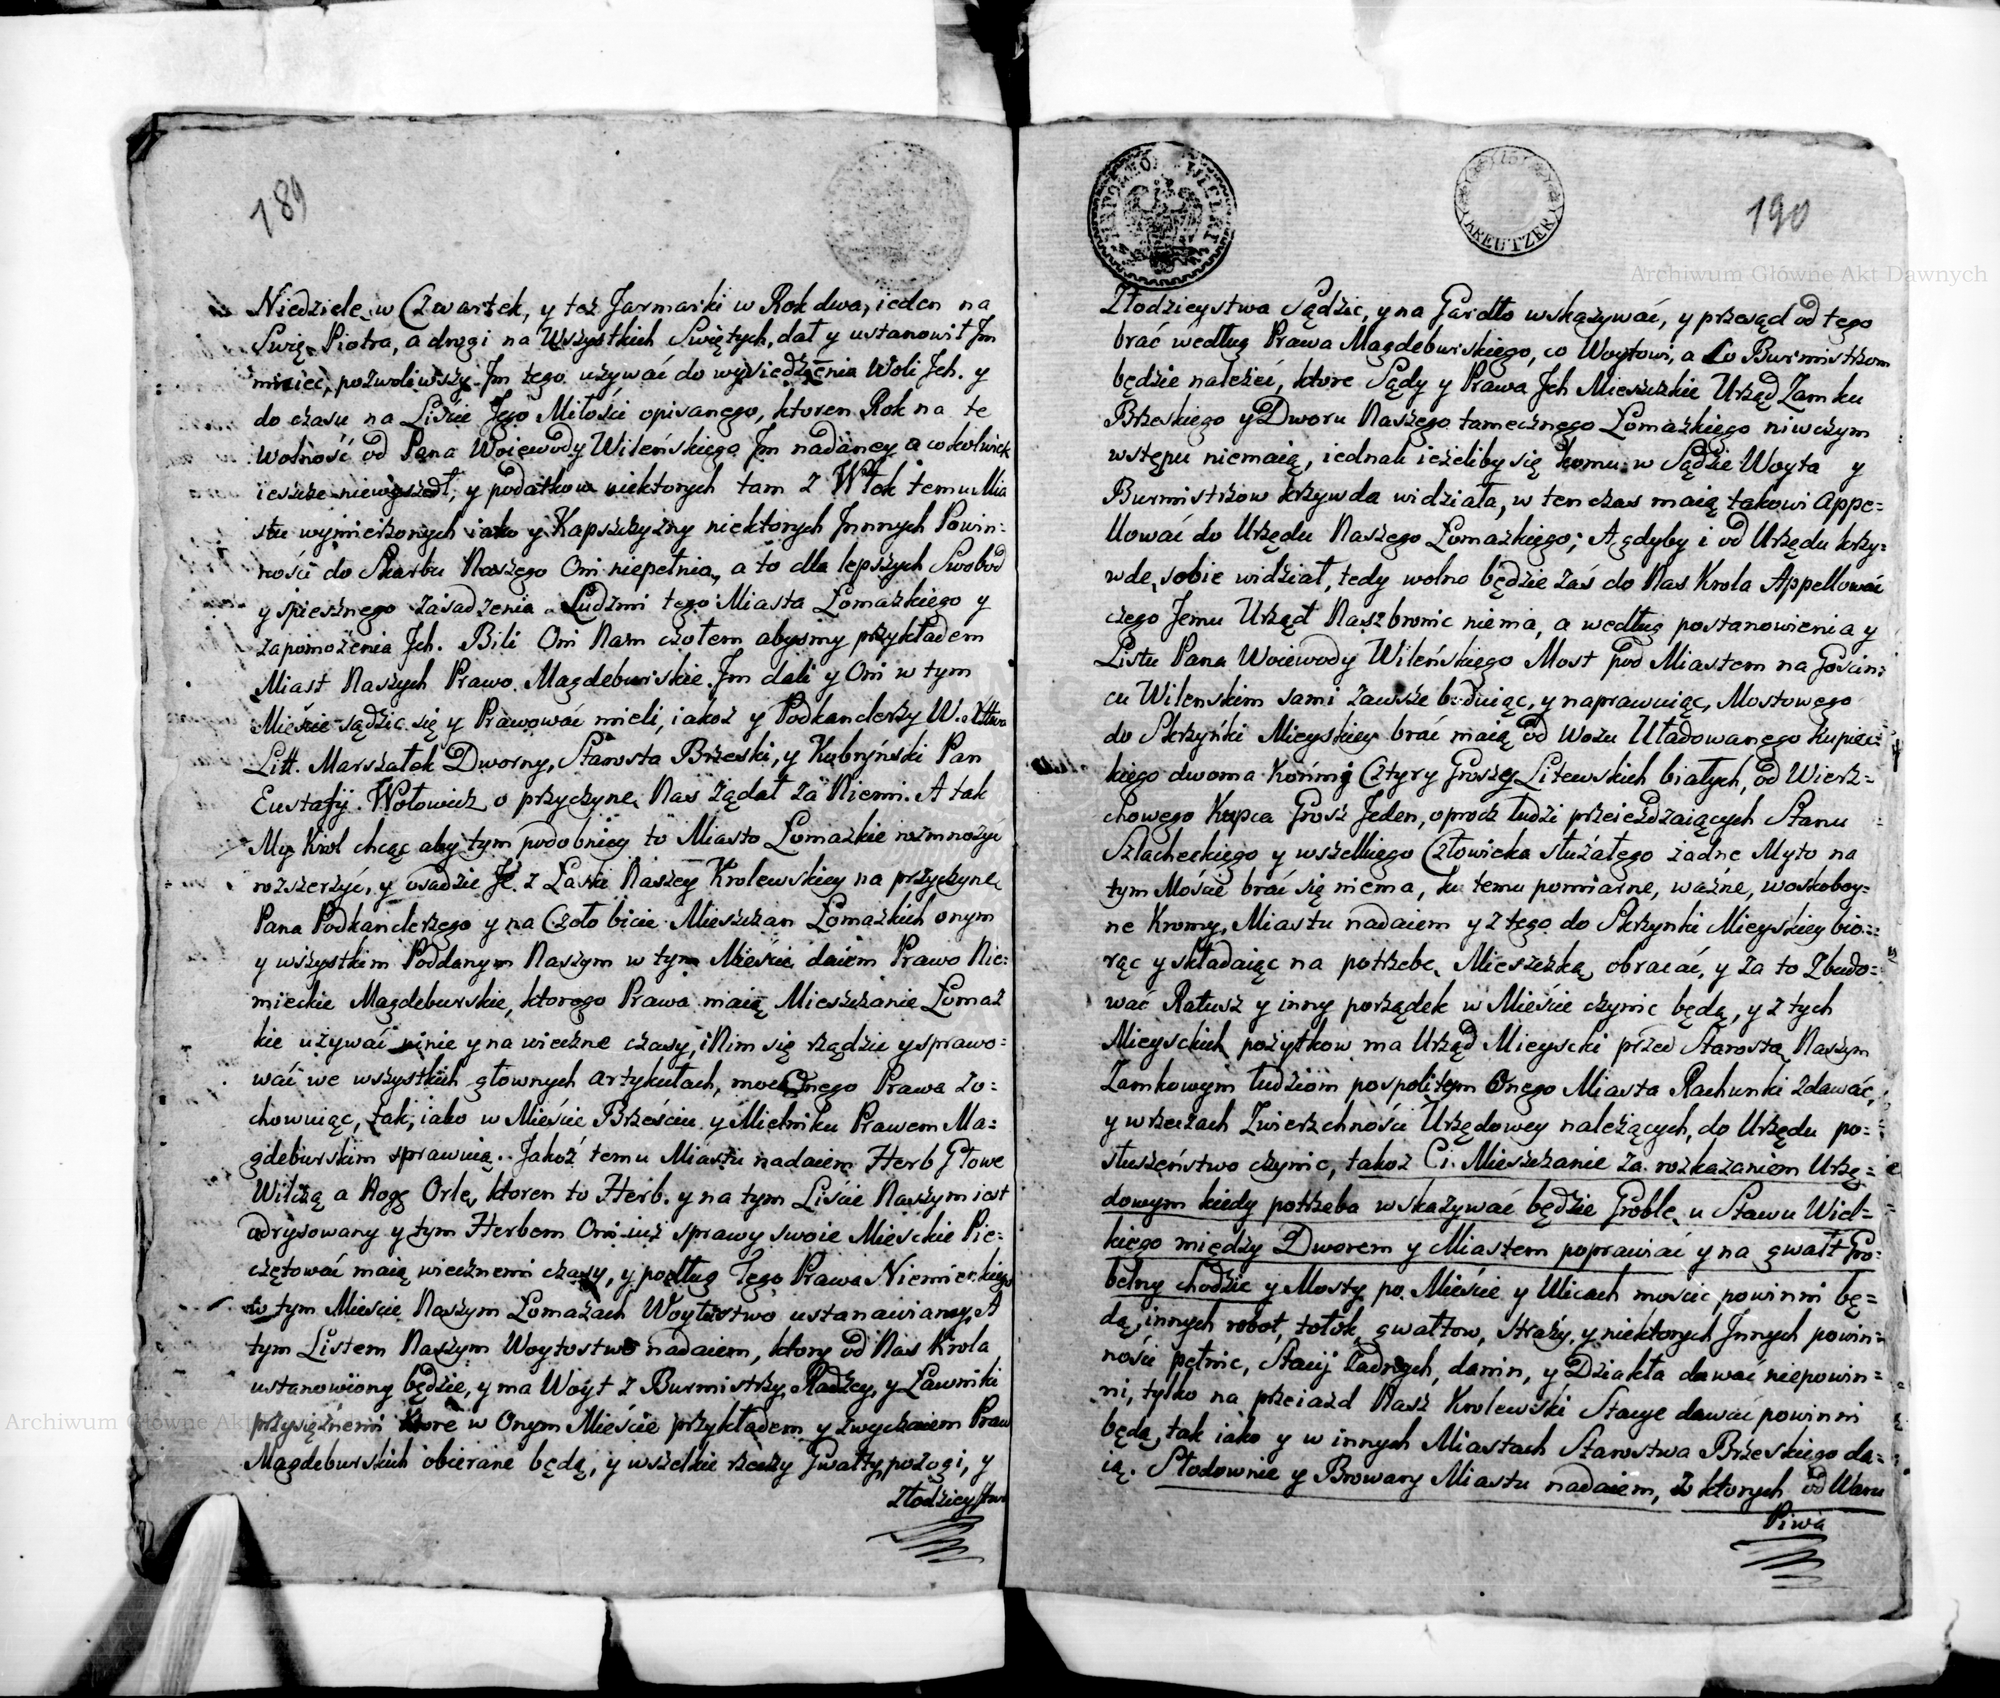 189
Niedzielę w Czwartek, y też Jarmarki w Rok dwa, ieden na
Swię. Piotra, a drugi na Wszystkich Swiętych, dał y ustanowił Jm
mieiec, pozwoliwszy Jm tego używać do wysiedzenia Woli Jch. y
do czasu na Liscie Jego Miłości opisanego, ktoren Rok na te
wolność od Pana Woiewody Wileńskiego Jm nadaney a cokolwiek
ieszcze niewyszedł, y podatkow niektorych tam z Włok temu Mia
stu wymierzonych iako y Kapszczyzny niektorych Jnnnych Powin=
ności do Skarbu Naszego Oni niepełnią, a to dla lepszych Swobod
y spiesznego zasadzenia Ludzmi tego Miasta Łomazkiego y
zapomożenia Jch. Bili Oni Nam czołem abysmy przykładem
Miast Naszych Prawo Magdeburskie Jm dali y Oni w tym
Mieście sądzic się y Prawować mieli, iakoż y Podkanclerzy W.
Litt. Marszałek Dworny, Starosta Brzeski, y Kobryński Pan
Eustafij Wołowicz o przyczynę Nas żądał za Niemi. A tak
My Krol chcąc aby tym podobniey to Miasto Łomazkie rozmnożyć
rozszerzyć, y osadzic Je z Łaski Naszey Krolewskiey na przyczynę
Pana Podkanclerzego y na Czoło bicie Mieszczan Łomazkich onym
y wszystkim Poddanym Naszym w tym Mieście daiem Prawo Nie=
mieckie Magdeburskie, ktorego Prawa maią Mieszczanie Łomaz
kie używać ninie y na wieczne czasy, i Nim się rządzic y sprawo=
wać we wszystkich głownych artykułach, moc Onego Prawa zo=
chowuiąc, tak, iako w Mieście Brześciu y Mielniku Prawem Ma=
gdeburskim sprawuią. Jakoż temu Miastu nadaiem Herb Głowe
Wilczą a Nogę Orlę, ktoren to Herb. y na tym Liście Naszym iest
odrysowany y tym Herbem Oni iuż sprawy swoie Mieskie Pie=
czętować maią wiecznemi czasy, y podług Tego Prawa Niemieckiego
w tym Mieście Naszym Łomazach Woytostwo ustanawiamy, A
tym Listem Naszym Woytostwo nadaiem, ktory od Nas Krola
ustanowiony będzie, y ma Woyt z Burmistrzy, Radzcy, y Ławniki
przysiężnemi ktore w Onym Mieście przykładem y zwyczaiem Praw
Magdeburskich obierane będą, y wszelkie rzeczy Gwałty, pożogi, y
Złodzieystwa
190
NAPOLEON WIELKI
15
KREUTZER
Złodzieystwa Sądzic, y na Gardło wskazywać, y przesąd od tego
brać według Prawa Magdeburskiego, co Woytowi, a co Burmistrzom
będzie należeć, ktore Sądy y Prawa Jch Mieszczkie Urząd Zamku
Brzeskiego y Dworu Naszego tamecznego Łomazkiego niwczym
wstępu niemaią, iednak ieżeliby się komu w Sądzie Woyta y
Burmistrzow krzywda widziała, w ten czas maią takowi Appe=
llować do Urzędu Naszego Łomazkiego; A gdyby i od Urzędu krzy=
wdę sobie widział, tedy wolno będzie zaś do Nas Krola Appellować
czego Jemu Urząd Nasz bronic niema, a według postanowienia y
Listu Pana Woiewody Wileńskiego Most pod Miastem na Gościn=
cu Wilenskim sami zawsze buduiąc, y naprawuiąc, Mostowego
do Skrzyńki Mieyskiey brać maią od Wozu Uładowanego Kupiec=
kiego dwoma Końmi Cztyry Groszey Litewskich białych, od Wierz=
chowego Kupca Grosz Jeden, oprocz ludzi przeieżdzaiących Stanu
Szlacheckiego y wszelkiego Człowieka służałego żadne Myto na
tym Moście brać się niema, ku temu pomiarne, ważne, woskoboy=
ne Kromy, Miastu nadaiem y z tego do Skrzynki Mieyskiey bio=
rąc y składaiąc na potrzebę Mieszczką obracać, y za to Zbudo=
wać Ratusz y inny porządek w Mieście czynic będą, y z tych
Mieysckich pożytkow ma Urząd Mieyscki przed Starostą Naszym
Zamkowym ludziom pospolitym Onego Miasta Rachunki zdawać,
y w rzeczach Zwierzchności Urzędowey należących, do Urzędu po=
słuszeństwo czynic, takoż Ci Mieszczanie za rozkazaniem Urzę=
dowym kiedy potrzeba wskazywać będzie Groblę u Stawu Wiel=
kiego między Dworem y Miastem poprawiać y na gwałt Gro=
belny chodzic y Mosty po Mieście y Ulicach moscic powinni bę=
dą, innych robot, tołok, gwałtow, Straży, y niektorych Jnnych powin=
ności pełnic, Stacij żadnych, danin, y Dziakła dawać niepowin=
ni, tylko na przeiazd Nasz Krolewski Stacye dawać powinni
będą, tak iako y w innych Miastach Starostwa Brzeskiego da=
ią. Słodownie y Browary Miastu nadaiem, z ktorych od Waru
Piwa
Archiwum Główne Akt Dawnych
Archiwum Główne Akt